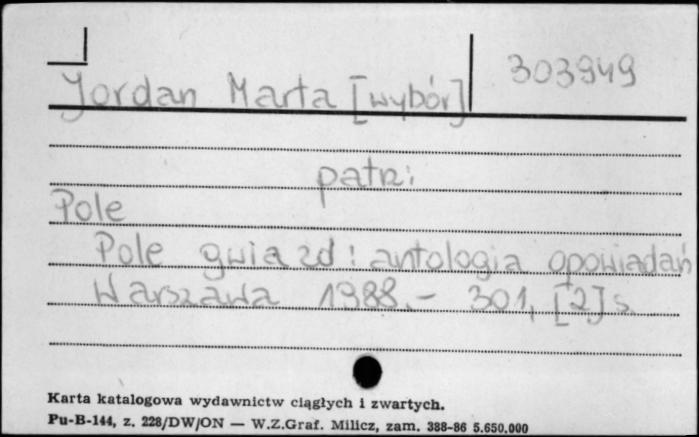 303949
Jordan Marta [wybór]
patrz:
Pole
Pole gwiazd : antologia opowiadań
Warszawa 1988.- 301, [2] s.
Karta katalogowa wydawnictw ciągłych i zwartych.
Pu-B-144, z. 228/DW/ON — W.Z.Graf. Milicz, zam. 388-86 5.650.000